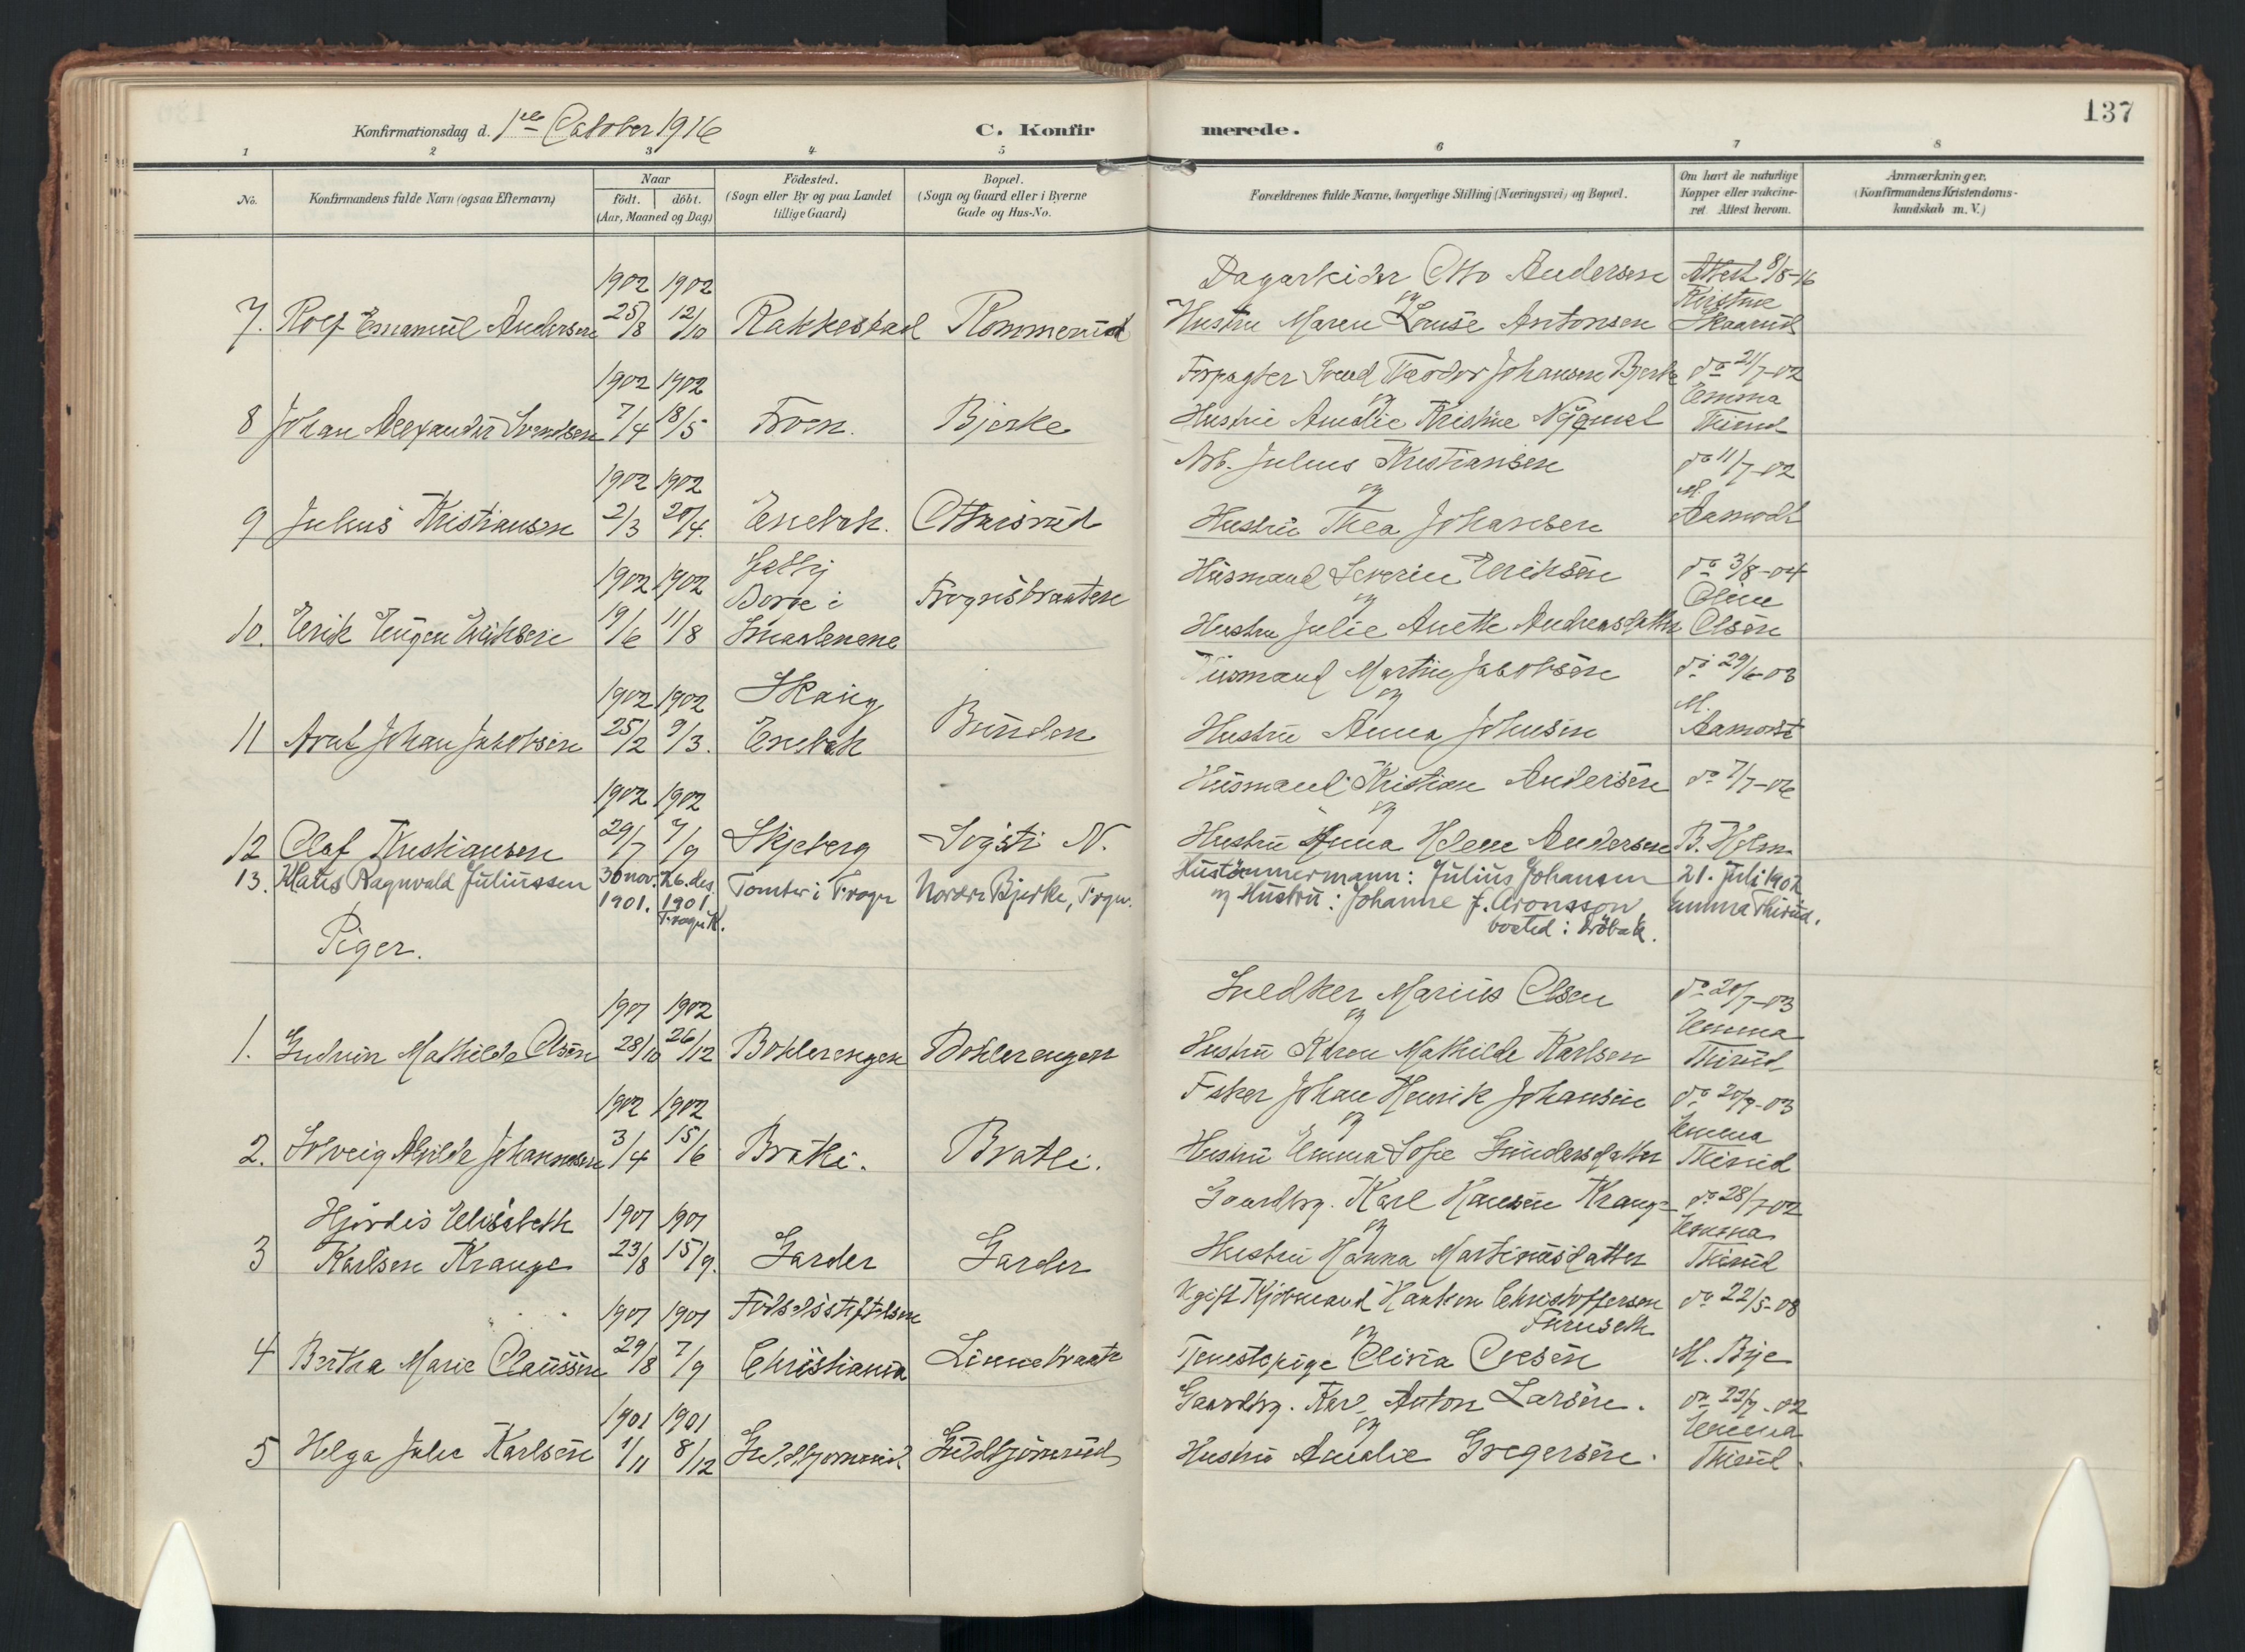 137
Konfirmationsdag d. 1ste October 1916
C. Konfirmerede.
1 2 3 4 5 6 7 8
No.
Konfirmandens fulde Navn (ogsaa Efternavn)
Naar
født. døbt.
(Aar, Maaned og Dag)
Födested.
(Sogn eller By og paa Landet
tillige Gaard)
Bopæl.
(Sogn og Gaard eller i Byerne
Gade og Hus-No.
Forældrenes fulde Navne, borgerlige Stilling (Næringsvei) og Bopæl.
Om havt de naturlige
Kopper eller vakcine-
ret Attest herom.
Anmærkninger.
(Konfirmandens Kristendoms-
kundskab m. V.)
1902 1902 Dagarbeider Otto Andersen Attest 8/8-16
og Kristine
7. Rolf Emanuel Andersen 25/8 12/10 Rakkestad Rommerud Hustru Maren Louise Antonsen Skaarud
1902 1902 Forpagter Svend Teodor Johansen Bjerke do 21/7-02
og Emma
8 Johan Alexander Svendsen 7/4 18/5 Froen. Bjerke Hustru Amalie Kristine Nygmel Thirud
1902 1902 Arb. Julius Kristiansen do 11/7-02
og M.
9 Julius Kristiansen 2/3 20/4. Enebak. Ottarsrud Hustru Thea Johansen Aamodt
1902 1902 Borge i Frognsbraaten Husmand Severin Eriksen do 3/8-04
og Oline
10. Erik Eugen Eriksen 19/6 11/8 Smaalenene Hustru Julie Anette Andreasdatter Olsen
1902 1902 Skaug Husmand Martin Jakobsen do 29/6-03
og M.
11 Arnt Johan Jakobsen 25/2 9/3. Enebak Bunden Hustru Anna Johnsen Aamodt
1902 1902 Husmand Kristian Andersen do 7/7-06
og
12 Olaf Kristiansen 29/7 7/9 Skjeberg Sogsti N. Hustru Anna Helene Andersen B. Holm
13. Klaus Ragnvald Juliussen 30 nov. 1901. 26. des. 1901 Frogn K. Tomter i Frogn Nordre Bjerke, Frogn. Hustömmermann: Julius Johansen 21. Juli 1902
og Hustru: Johanne f. Aronsson Emma Thirud.
bosted: Dröbak.
Piger.
1901 1902 Snedker Marius Olsen do 20/7-03
og Emma
1. Gudrun Mathilde Olsen 28/10 26/12 Bohlerengen Bohlerengen Hustru Karen Mathilde Karlsen Thirud
1902 1902 Fisker Johan Henrik Johansen do 20/7-03
og Emma
2. Solveig Alvilde Johannesen 3/4 15/6 Bratli. Bratli. Hustru Emma Sofie Gundersdatter Thirud
Hjördis Elisabeth 1901 1901 Gaardbrg. Karl Hansen Krange do 28/7-02
og Emma
3 Karlsen Krange 23/8 15/9. Garder Garder Hustru Hanna Martinusdatter Thirud
1901 1901 Fødselsstiftelsen Ugift Kjöbmand Haakon Christoffersen do 22/5-08
Furuseth
og
4 Bertha Marie Claussen 29/8 7/9 Christiania Linnebraate Tjenestepige Olivia Olesen M. Bye
1901 1901 Gaardbrg. Karl Anton Larsen. do 22/7-02
og Emma
5 Helga Julie Karlsen 1/11 8/12 Guldbjørnrud. Guldbjörnrud Hustru Amalie Gregersen. Thirud